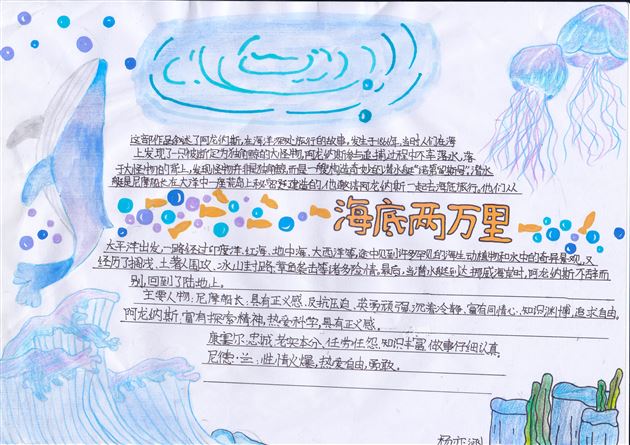 这部作品叙述了阿龙纳斯,在海洋深处旅行的故事,发生于1866年,当时人们在海
上发现了一只被断定为独角鲸的大怪物,阿龙纳斯参与追捕过程中不幸落水,落
于大怪物的背上,发现怪物并非是独角鲸,而是一艘构造奇妙的潜水艇“诺第留斯号”,潜水
艇是尼摩船长在大洋中一座荒岛上秘密建造的,他邀请阿龙纳斯一起去海底旅行,他们从
海底两万里
太平洋出发,一路经过印度洋、红海、地中海、大西洋等,途中见到许多罕见的海生动植物和水中的奇异景观,又
经历了搁浅、土著人围攻、冰山封路、章鱼袭击等诸多险情,最后,当潜水艇到达挪威海岸时,阿龙纳斯不辞而
别,回到了陆地上。
主要人物:尼摩船长:具有正义感,反抗压迫,英勇顽强,沉着冷静,富有同情心,知识渊博,追求自由。
阿龙纳斯:富有探索精神,热爱科学,具有正义感。
康塞尔:忠诚老实本分,任劳任怨,知识丰富,做事仔细认真
尼德·兰:性情火爆,热爱自由,勇敢。
杨亦涵